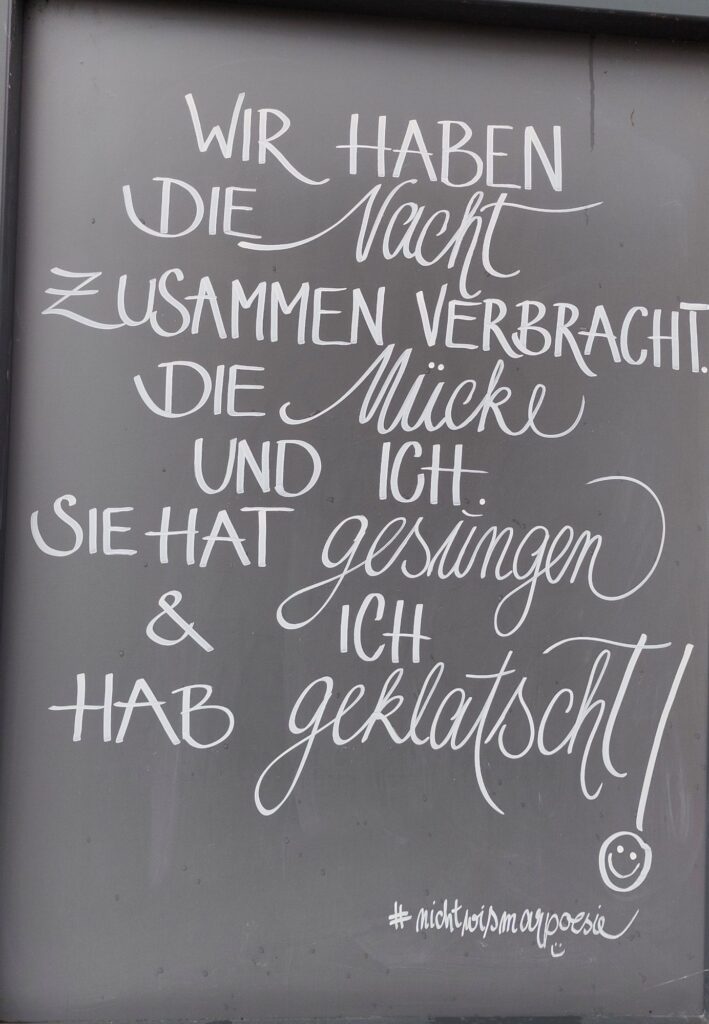 WIR HABEN
DIE Nacht
ZUSAMMEN VERBRACHT.
DIE Mücke
UND ICH.
SIE HAT gesungen
& ICH
HAB geklatscht!
#nichtwismarpoesie